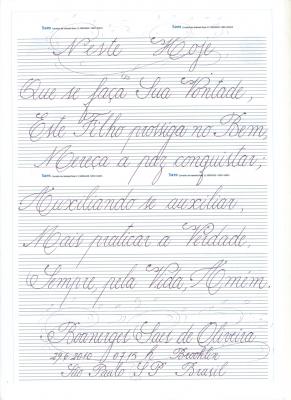 Neste Hoje
Que se faça Sua Vontade,
Este Filho prossiga no Bem,
Mereça a paz conquistar,
Auxiliando se auxiliar,
Mais praticar a Verdade,
Sempre pela Vida, Amém.
Boanerges Saes de Oliveira
29 6 2010 07:15 h Brooklin
São Paulo SP Brasil